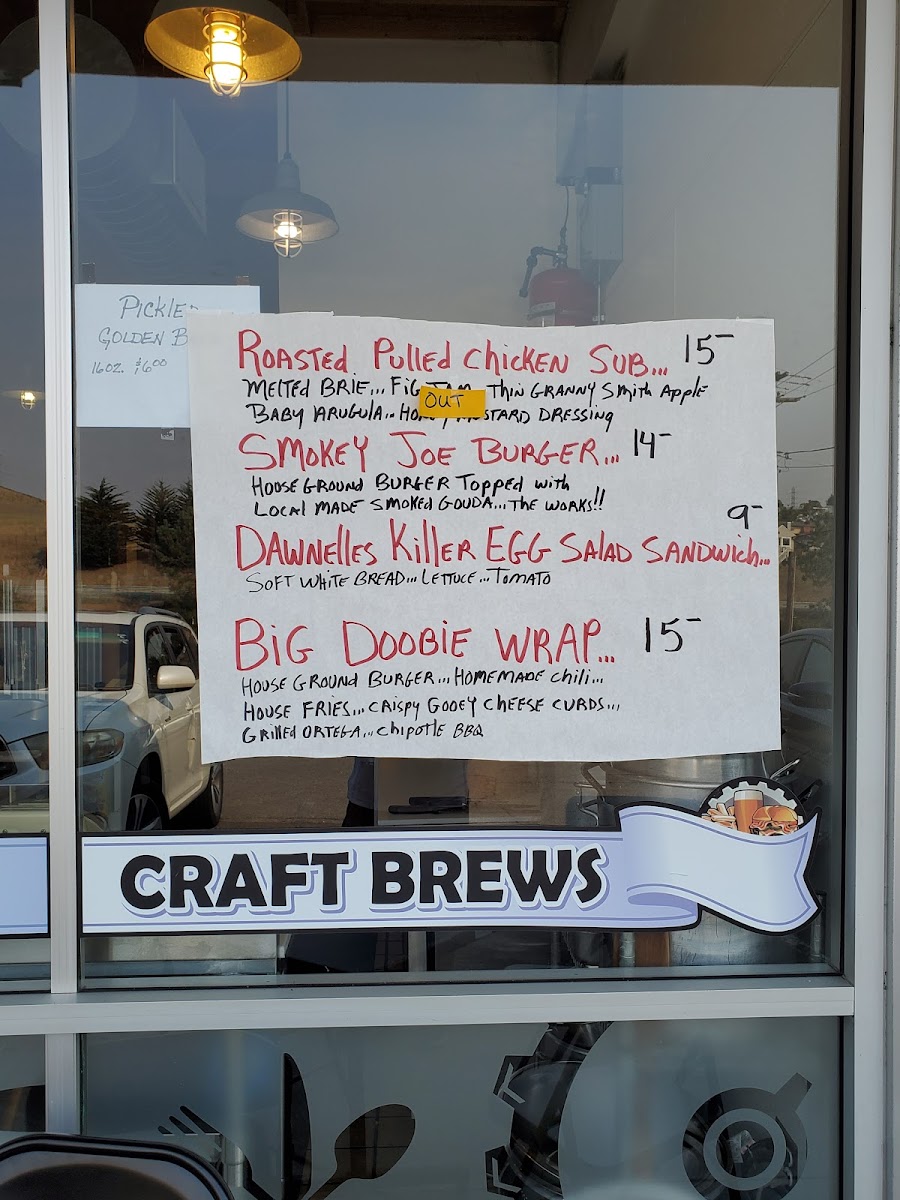 PICKLE
GOLDEN B
16OZ. $6.00
ROASTED PULLED CHICKEN SUB... 15-
MELTED BRIE... FIG JAM THIN GRANNY SMITH APPLE
OUT
BABY ARUGULA.. HONEY MUSTARD DRESSING
SMOKEY JOE BURGER... 14-
HOUSE GROUND BURGER TOPPED WITH
LOCAL MADE SMOKED GOUDA... THE WORKS!!
9-
DAWNELLES KILLER EGG SALAD SANDWICH...
SOFT WHITE BREAD... LETTUCE... TOMATO
BIG DOOBIE WRAP... 15-
HOUSE GROUND BURGER... HOMEMADE CHILI...
HOUSE FRIES... CRISPY GOOEY CHEESE CURDS...
GRILLED ORTEGA... CHIPOTLE BBQ
CRAFT BREWS